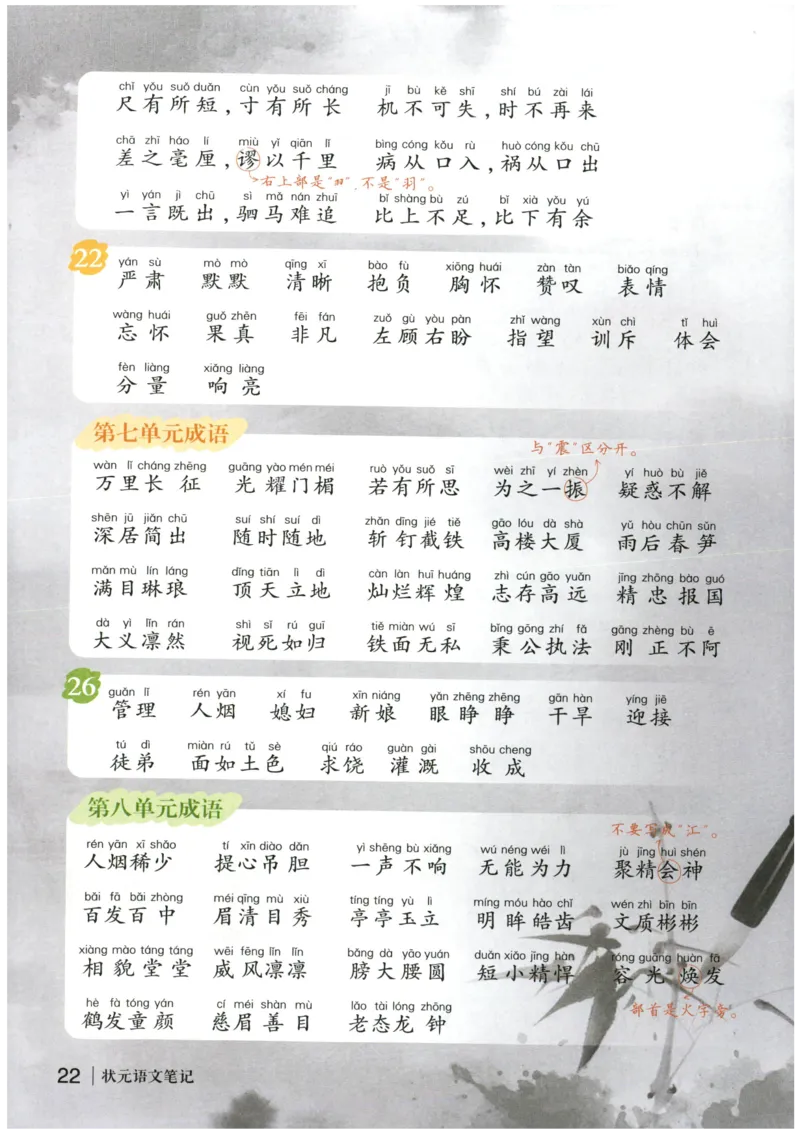 chǐ yǒu suǒ duǎn cùn yǒu suǒ cháng jī bù kě shī shí bú zài lái
尺有所短，寸有所长 机不可失，时不再来
chā zhī háo lí miù yǐ qiān lǐ bìng cóng kǒu rù huò cóng kǒu chū
差之毫厘，谬以千里 病从口入，祸从口出
右上部是“ㄲ”，不是“羽”。
yì yán jì chū sì mǎ nán zhuī bǐ shàng bù zú bǐ xià yǒu yú
一言既出，驷马难追 比上不足，比下有余
22
yán sù mò mò qīng xī bào fù xiōng huái zàn tàn biǎo qíng
严肃 默默 清晰 抱负 胸怀 赞叹 表情
wàng huái guǒ zhēn fēi fán zuǒ gù yòu pàn zhǐ wàng xùn chì tǐ huì
忘怀 果真 非凡 左顾右盼 指望 训斥 体会
fèn liàng xiǎng liàng
分量 响亮
第七单元成语
与“震”区分开。
wàn lǐ cháng zhēng guāng yào mén méi ruò yǒu suǒ sī wèi zhī yí zhèn yí huò bù jiě
万里长征 光耀门楣 若有所思 为之一振 疑惑不解
shēn jū jiǎn chū suí shí suí dì zhǎn dīng jié tiě gāo lóu dà shà yǔ hòu chūn sǔn
深居简出 随时随地 斩钉截铁 高楼大厦 雨后春笋
mǎn mù lín láng dǐng tiān lì dì càn làn huī huáng zhì cún gāo yuǎn jīng zhōng bào guó
满目琳琅 顶天立地 灿烂辉煌 志存高远 精忠报国
dà yì lǐn rán shì sǐ rú guī tiě miàn wú sī bǐng gōng zhí fǎ gāng zhèng bù ē
大义凛然 视死如归 铁面无私 秉公执法 刚正不阿
26
guǎn lǐ rén yān xí fu xīn niáng yǎn zhēng zhēng gān hàn yíng jiē
管理 人烟 媳妇 新娘 眼睁睁 干旱 迎接
tú dì miàn rú tǔ sè qiú ráo guàn gài shōu cheng
徒弟 面如土色 求饶 灌溉 收成
第八单元成语
不要写成“汇”。
rén yān xī shǎo tí xīn diào dǎn yì shēng bù xiǎng wú néng wéi lì jù jīng huì shén
人烟稀少 提心吊胆 一声不响 无能为力 聚精会神
bǎi fā bǎi zhòng méi qīng mù xiù tíng tíng yù lì míng móu hào chǐ wén zhì bīn bīn
百发百中 眉清目秀 亭亭玉立 明眸皓齿 文质彬彬
xiàng mào táng táng wēi fēng lǐn lǐn bǎng dà yāo yuán duǎn xiǎo jīng hàn róng guāng huàn fā
相貌堂堂 威风凛凛 膀大腰圆 短小精悍 容光焕发
部首是火字旁。
hè fà tóng yán cí méi shàn mù lǎo tài lóng zhōng
鹤发童颜 慈眉善目 老态龙钟
22 状元语文笔记